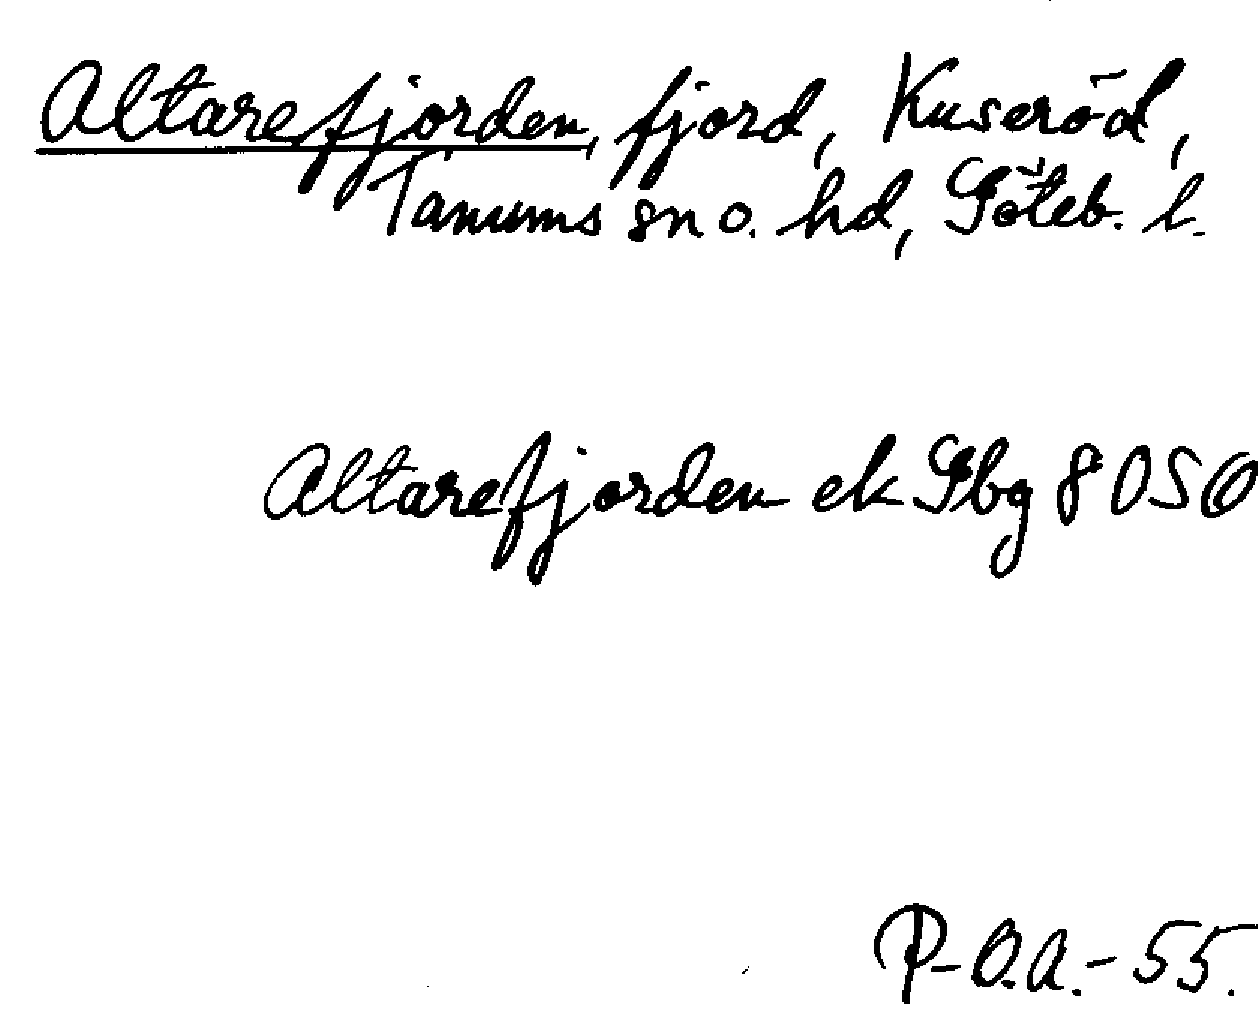 Altarefjorden, fjord, Kuseröd,
Tanums sn o. hd, Göteb. l.
Altarefjorden ek Gbg 8 0SO
P-O.A.-55.